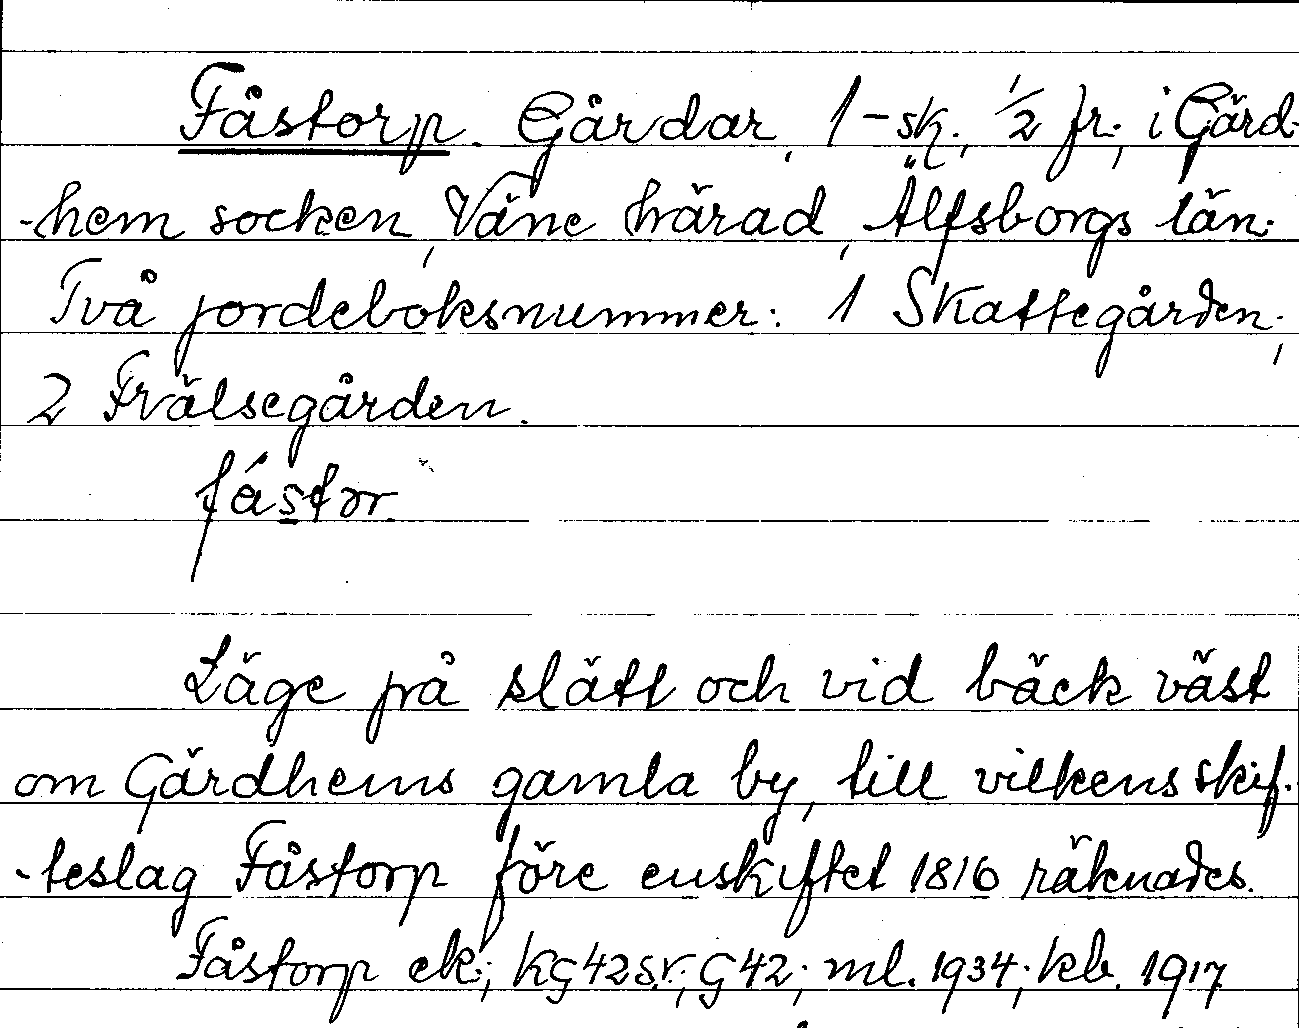 Fåstorp. Gårdar, 1 - sk., 1/2 fr., i Gärd-
-hem socken, Väne härad, Älfsborgs län.
Två jordeboksnummer: 1 Skattegården,
2 Frälsegården.
fástor
Läge på slätt och vid bäck väst
om Gärdhems gamla by, till vilkens skif-
-teslag Fåstorp före enskiftet 1816 räknades.
Fåstorp ek; KG42sv; G42; ml. 1934; kb. 1917